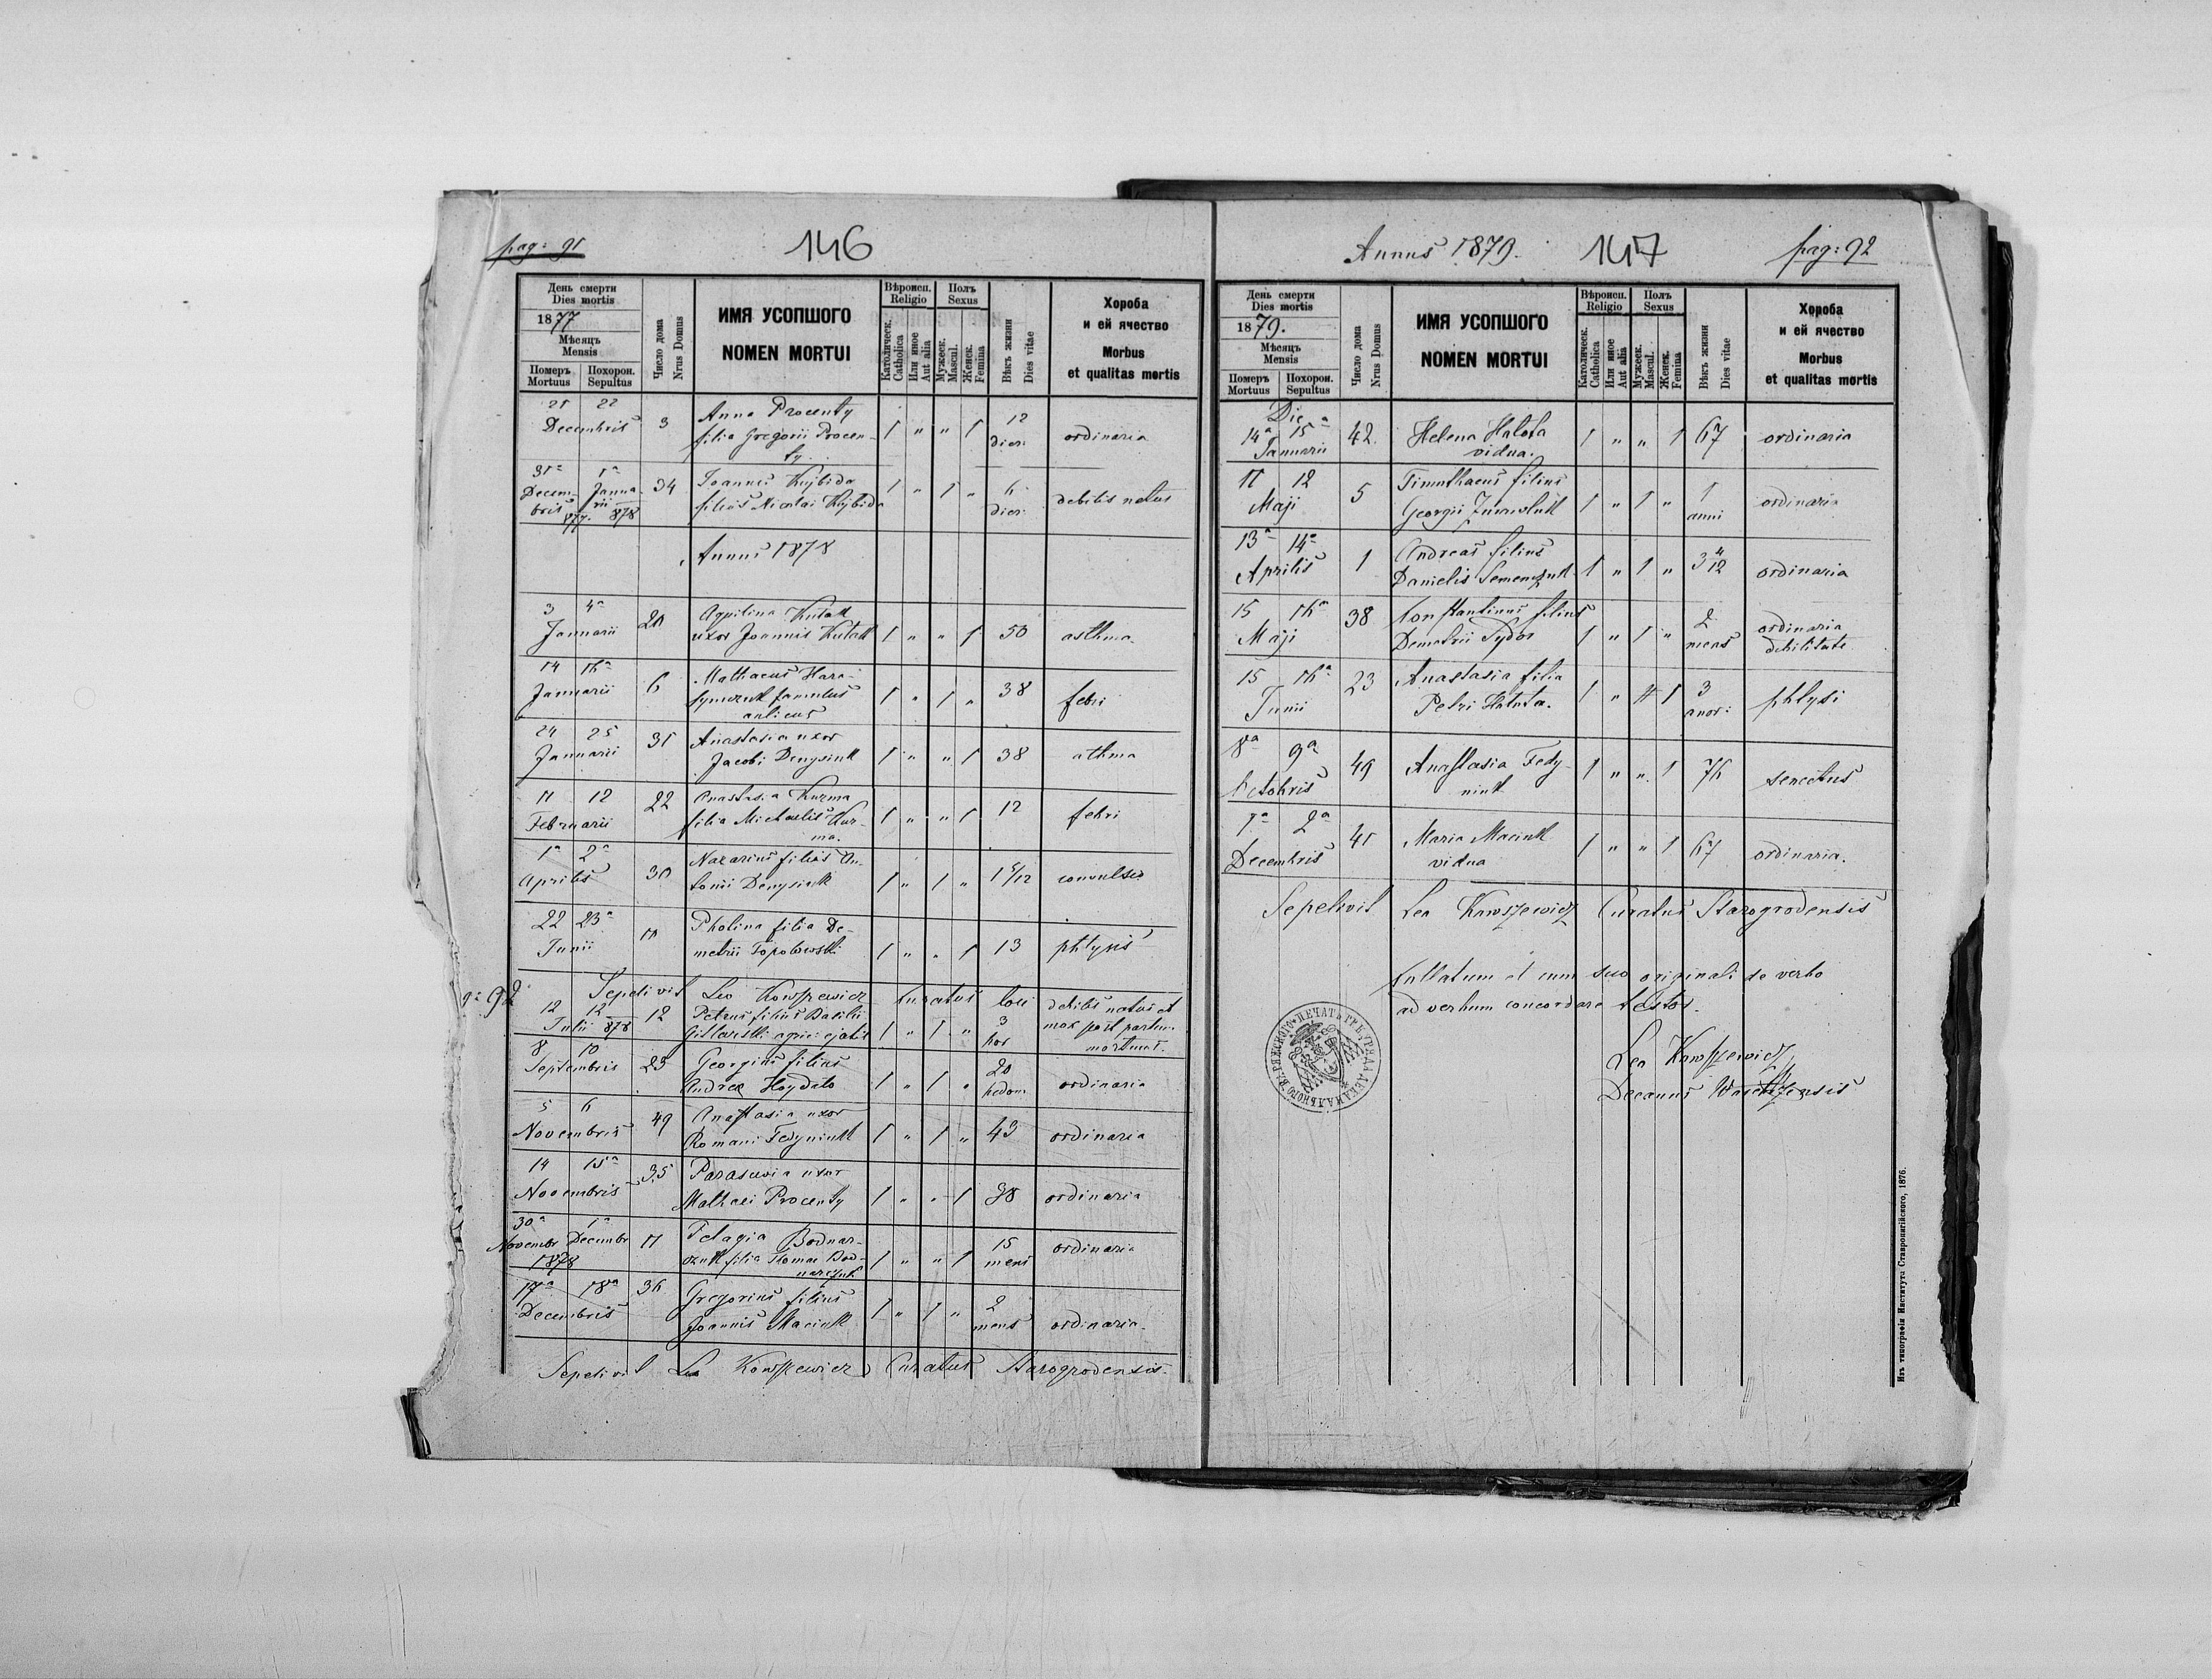 pag: 91
146
День смерти
Dies mortis
1877
Мѣсяцъ
Mensis
Померъ Похорон.
Mortuus Sepultus
Число дома
Nrus Domus
ИМЯ УСОПШОГО
NOMEN MORTUI
Вѣроисп.
Religio
Католическ.
Catholica
Или иное
Aut alia
Полъ
Sexus
Мужеск.
Mascul.
Женск.
Femina
Вѣкъ жизни
Dies vitae
Хороба
и ей ячество
Morbus
et qualitas mortis
21 22
Decembris 3 Anna Procenty
filia Gregorii Procen-
ty 1 " " 1 12
dier: ordinaria
31a 1a
Decem- Janua-
bris rii
877. 878 34 Joannes Kijbida
filius Nicolai Kijbida 1 " 1 " 6
dier: debilis natus
Annus 1878
3 4a
Januarii 20 Aquilina Kutak
uxor Joannis Kutak 1 " " 1 50 asthma
14 16a
Januarii 6 Mathaeus Hara-
famulus
1 " 1 " 38 febri
24 25
Januarii 31 Anastasia uxor
Jacobi Denysiuk 1 " " 1 38 athma
11 12
Februarii 22 Anastasia Kuzma
filia Michaelis Kuz-
ma 1 " " 1 12 febri
1a 2a
Aprilis 30 Nazarius filius An-
tonii Denysiuk 1 " 1 " convulsio
22 23a
Junii 11 Pholina filia De-
metrii Topolowski 1 " " 1 13 phtysis
Sepelivit Leo Kowszewicz Curatus loci
12 12
Julii 878 12 Petrus filius Basilii
1 " 1 " 3
hor debilis natus et
mox post partum
mortuus.
8 10
Septembris 23 Georgius filius
Andreae Hoydalo 1 " 1 " 20
hedom ordinaria
5 6
Novembris 49 Anastasia uxor
Romani Fedyniuk 1 " 1 " 43 ordinaria
14 15a
Novembris 35 Parascevia uxor
Mathaei Procenty 1 " " 1 38 ordinaria
30a 1a
Novembr Decembr
1878 11 Pelagia Bodnar-
czuk filia Thomae Bod-
narczuk 1 " " 1 15
mens ordinaria
17a 18a
Decembris 36 Gregorius filius
Joannis Maciuk 1 " 1 " 2
mens ordinaria
Sepelivit Leo Kowszewicz Curatus Starogrodensis.
Annus 1879. 147 pag: 92
День смерти
Dies mortis
1879.
Мѣсяцъ
Mensis
Померъ Похорон.
Mortuus Sepultus
Число дома
Nrus Domus
ИМЯ УСОПШОГО
NOMEN MORTUI
Вѣроисп.
Religio
Католическ.
Catholica
Или иное
Aut alia
Полъ
Sexus
Мужеск.
Mascul.
Женск.
Femina
Вѣкъ жизни
Dies vitae
Хороба
и ей ячество
Morbus
et qualitas mortis
Die
14a 15a
Januarii 42 Helena Halota
vidua. 1 " " 1 67 ordinaria
11 12
Maji 5 Timothaeus filius
Georgii 1 " 1 " 1
anni ordinaria
13a 14a
Aprilis 1 Andreas filius
Danielis Semenczuk 1 " 1 " 3 4/12 ordinaria
15 16a
Maji 38 Constantinus filius
Demetrii Sydor 1 " 1 " 2
mens ordinaria
debilitate
15 16a
Junii 23 Anastasia filia
Petri Halota. 1 " 1 3
anor: phtysi
8a 9a
Octobris 49 Anastasia Fedy-
niuk 1 " " 1 76 senectus
1a 2a
Decembris 41 Maria Maciuk
vidua 1 " " 1 67 ordinaria.
Sepelivit Leo Kowszewicz Curatus Starogrodensis
Collatum et cum suo originali de verbo
ad verbum concordare testor.
Leo Kowszewicz
Decanus
Изъ типографіи Института Ставропигійского, 1876.